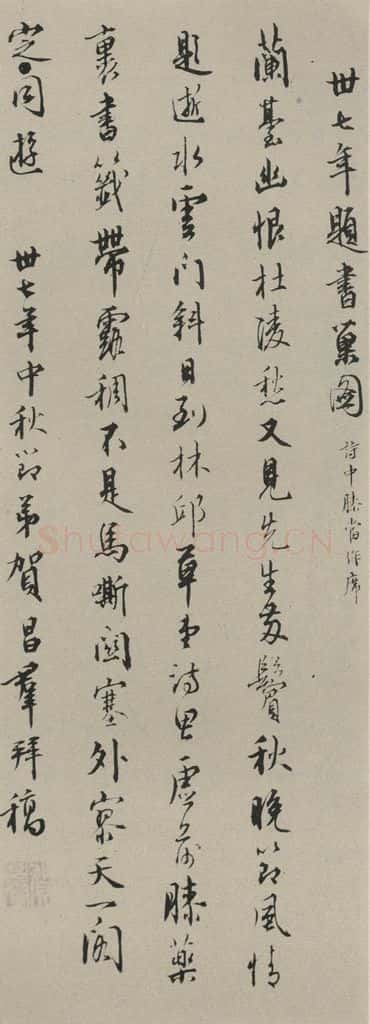 卅七年題書巢圖 詩中膝當作席
蘭臺幽恨杜陵愁又見先生髮鬢秋晚節風情
題逝水雲門斜日到林邱草堂詩思虛前膝藥
裹書籤帶露稠不是馬嘶關塞外寥天一閣
定同遊 卅七年中秋節弟賀昌羣拜稿
Shufawang.CN